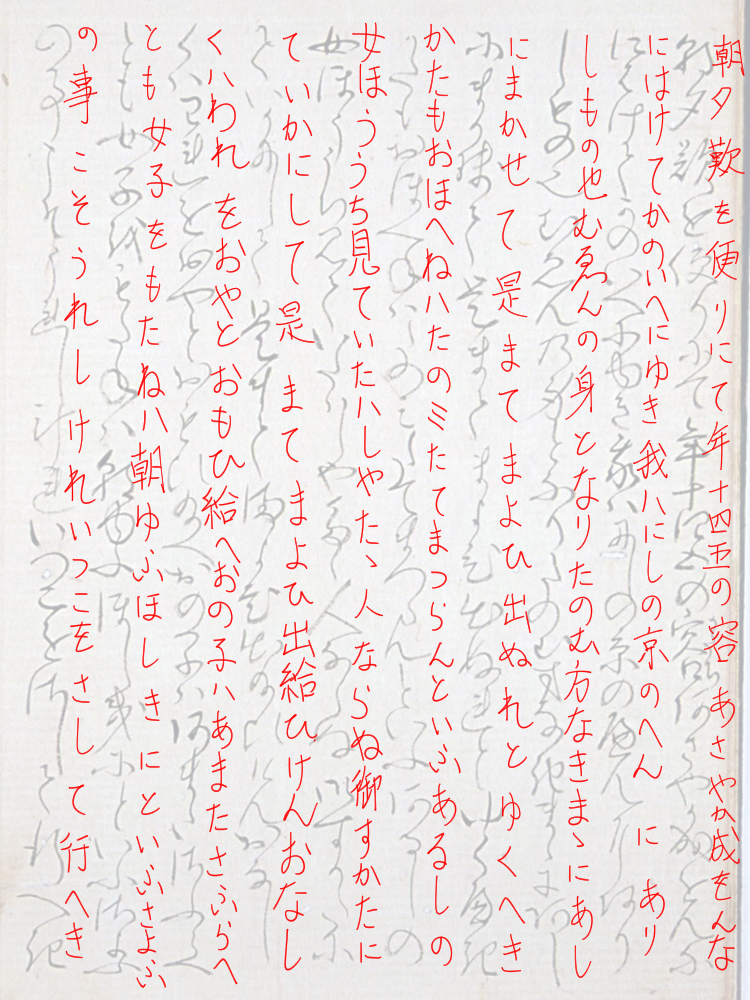 朝夕歎を便りにて年十四五の容あさやか成をんな
にはけてかのいへにゆき我ハにしの京のへんにあり
しもの也むゑんの身となりたのむ方なきまゝにあし
にまかせて是まてまよひ出ぬれとゆくへき
かたもおほへねハたのミたてまつらんといふあるしの
女ほううち見ていたハしやたゝ人ならぬ御すかたに
ていかにして是まてまよひ出給ひけんおなし
くハわれをおやとおもひ給へおの子ハあまたさふらへ
とも女子をもたねハ朝ゆふほしきにといふさよふ
の事こそうれしけれいつこをさして行へき